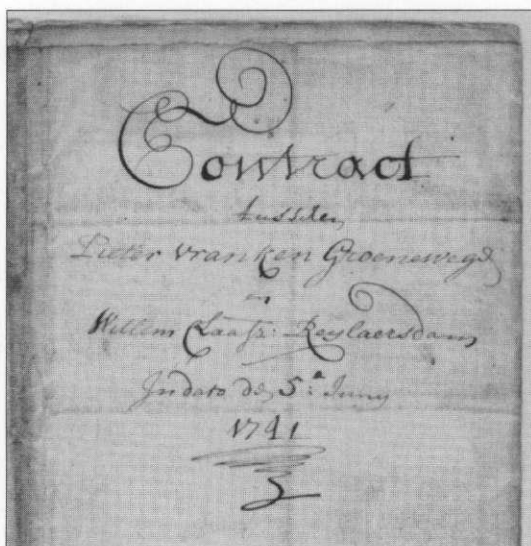 Contract
tusschen
Pieter Vranken Groenewege
en
Willem Claasz: Reylaersdam
In dato de 5:e Juny
1741